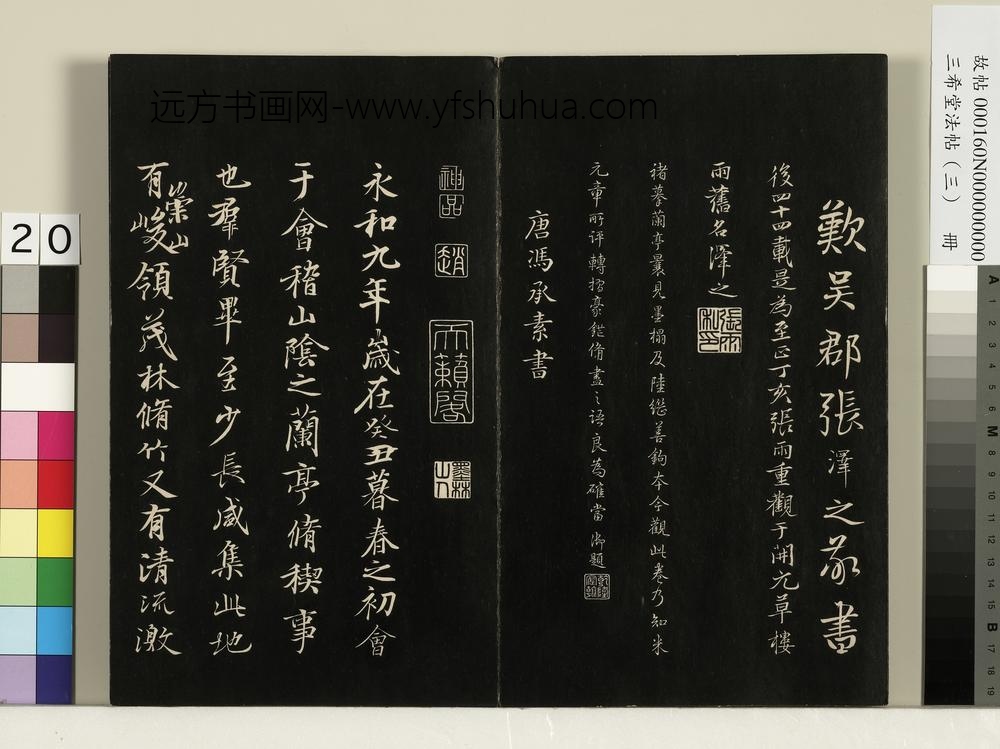 歎吳郡張澤之敬書
後四十四載是為至正丁亥張雨重觀于開元草樓
雨舊名澤之
張雨私印
褚摹蘭亭曩見墨搨及陸繼善鉤本今觀此卷乃知米
元章所評轉摺毫鋩備盡之語良為確當 御題
乾隆
唐馮承素書
神品
趙
天籟閣
墨林山人
永和九年歲在癸丑暮春之初會
于會稽山陰之蘭亭脩稧事
也羣賢畢至少長咸集此地
有崇山峻領茂林脩竹又有清流激
远方书画网-www.yfshuhua.com
故帖 000160N000000000
三希堂法帖(三) 冊
20
A 1 2 3 4 5 6 M 8 9 10 11 12 13 14 15 B 17 18 19